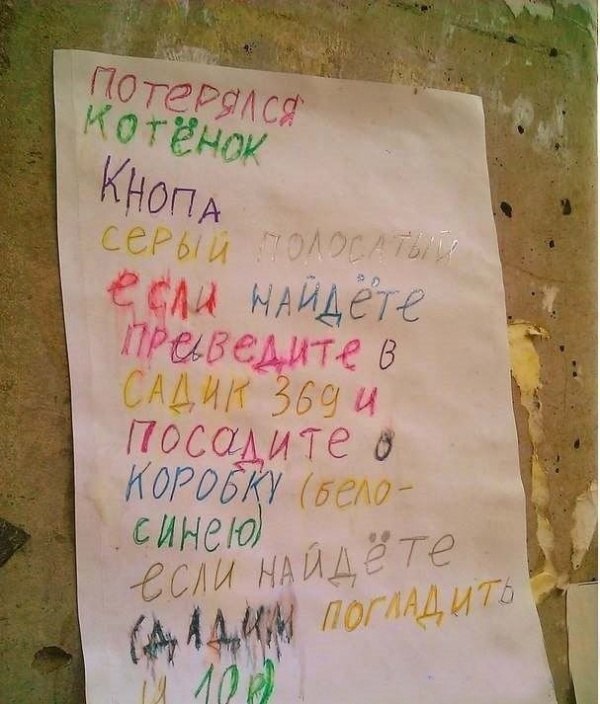 ПОТЕРЯЛСЯ
КОТЁНОК
КНОПА
СЕРЫЙ ПОЛОСАТЫЙ
если НАЙДЁТЕ
ПРЕВЕДИТЕ В
САДИК 369 И
ПОСАДИТЕ В
КОРОБКУ (БЕЛО-
СИНЕЮ)
ЕСЛИ НАЙДЁТЕ
ДАДИМ ПОГЛАДИТЬ
И 10р